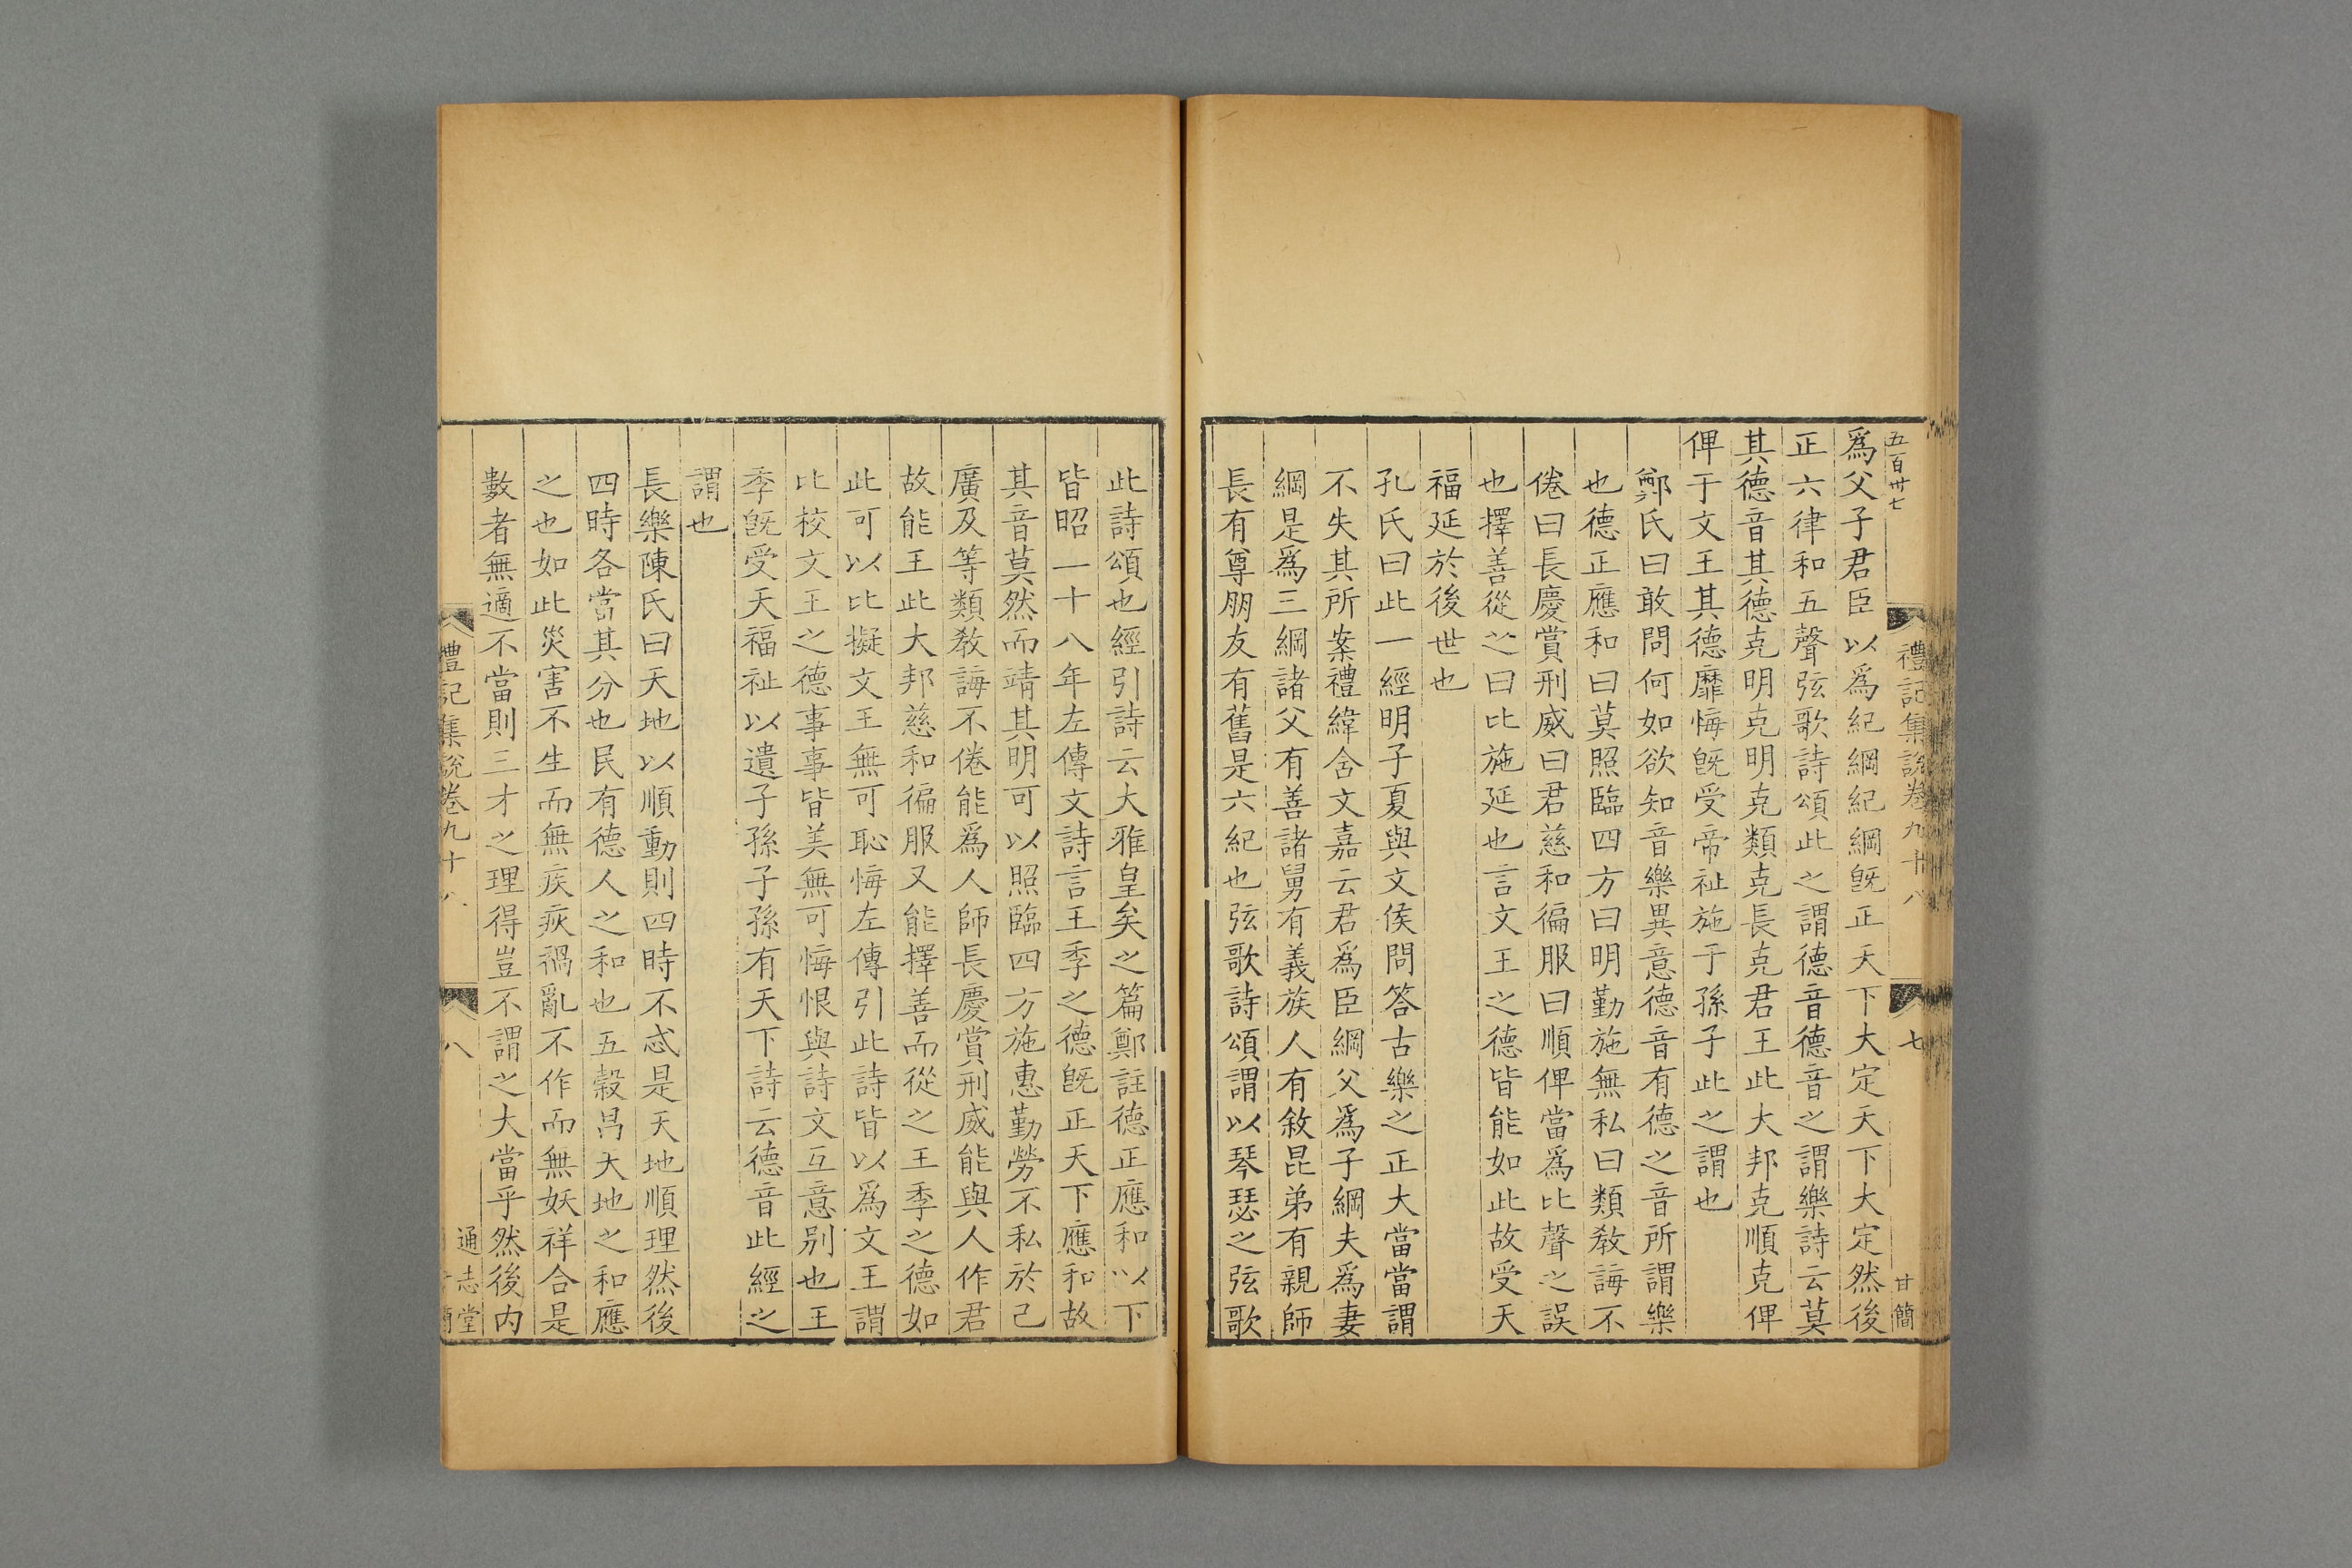 五百卅七
禮記集說卷九十八
七
甘簡
爲父子君臣以爲紀綱紀綱旣正天下大定天下大定然後
正六律和五聲弦歌詩頌此之謂德音德音之謂樂詩云莫
其德音其德克明克明克類克長克君王此大邦克順克俾
俾于文王其德靡悔旣受帝祉施于孫子此之謂也
鄭氏曰敢問何如欲知音樂異意德音有德之音所謂樂
也德正應和曰莫照臨四方曰明勤施無私曰類敎誨不
倦曰長慶賞刑威曰君慈和徧服曰順俾當爲比聲之誤
也擇善從之曰比施延也言文王之德皆能如此故受天
福延於後世也
孔氏曰此一經明子夏與文侯問答古樂之正大當當謂
不失其所案禮緯含文嘉云君爲臣綱父爲子綱夫爲妻
綱是爲三綱諸父有善諸舅有義族人有敘昆弟有親師
長有尊朋友有舊是六紀也弦歌詩頌謂以琴瑟之弦歌
此詩頌也經引詩云大雅皇矣之篇鄭註德正應和以下
皆昭二十八年左傳文詩言王季之德旣正天下應和故
其音莫然而靖其明可以照臨四方施惠勤勞不私於己
廣及等類敎誨不倦能爲人師長慶賞刑威能與人作君
故能王此大邦慈和徧服又能擇善而從之王季之德如
此可以比擬文王無可恥悔左傳引此詩皆以爲文王謂
比校文王之德事事皆美無可悔恨與詩文互意別也王
季旣受天福祉以遺子孫子孫有天下詩云德音此經之
謂也
長樂陳氏曰天地以順動則四時不忒是天地順理然後
四時各當其分也民有德人之和也五穀昌大地之和應
之也如此災害不生而無疾疢禍亂不作而無妖祥合是
數者無適不當則三才之理得豈不謂之大當乎然後內
禮記集說卷九十八
八
通志堂